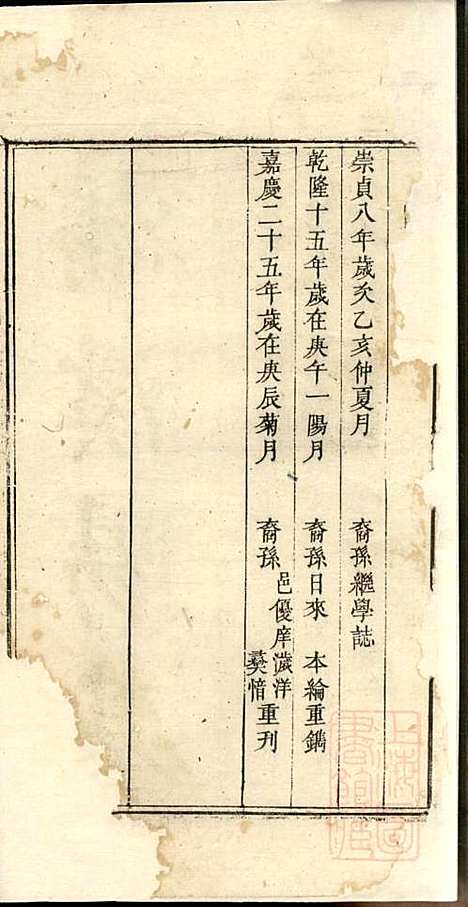 崇貞八年歲次乙亥仲夏月　裔孫繼學誌
乾隆十五年歲在庚午一陽月　裔孫日來　本綸重鐫
嘉慶二十五年歲在庚辰菊月　裔孫 邑優庠 濊洋 爕愔 重刊
上海圖書館藏